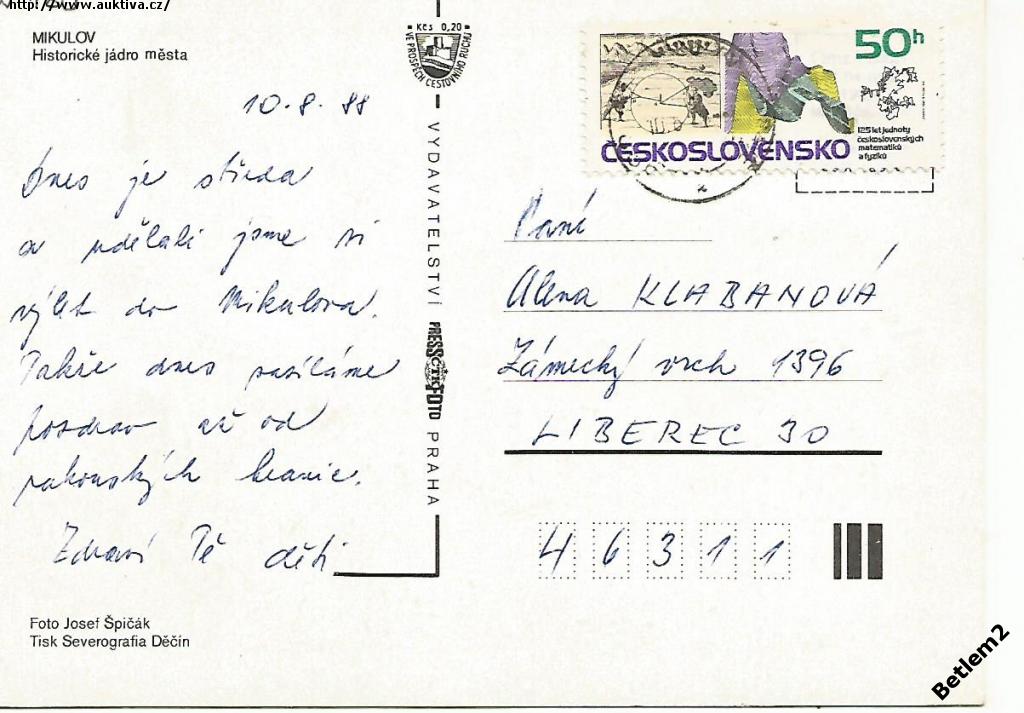 http://www.auktiva.cz/
MIKULOV
Historické jádro města
10.8.88
Dnes je středa
a udělali jsme si
výlet do Mikulova.
Takže dnes posíláme
pozdrav až od
rakouských hranic.
Zdraví Tě děti
Foto Josef Špičák
Tisk Severografia Děčín
Kčs 0,20
VE PROSPĚCH CESTOVNÍHO RUCHU
VYDAVATELSTVÍ
PRESSFOTO
ČTK
PRAHA
50h
125 let jednoty
československých
matematiků
a fyziků
ČESKOSLOVENSKO
Paní
Alena KLABANOVÁ
Zámecký vrch 1396
LIBEREC 30
46311
Betlem2